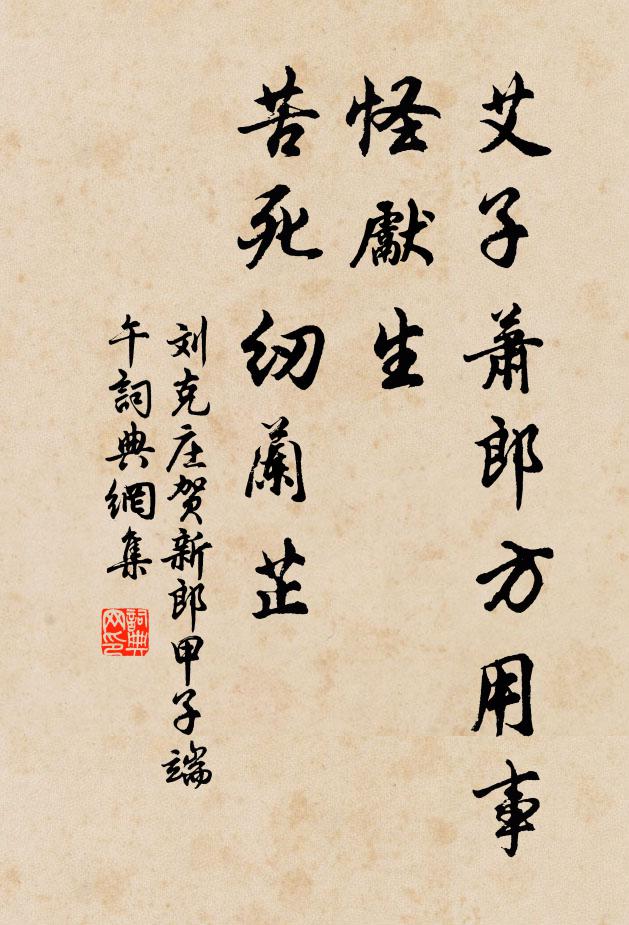 艾子蕭郎方用事
怪獻生
苦死紉蘭芷
刘克庄贺新郎甲子端
午詞典網集
詞典
网印